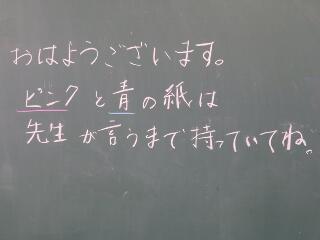 おはようございます。
ピンクと青の紙は
先生が言うまで持っていてね。